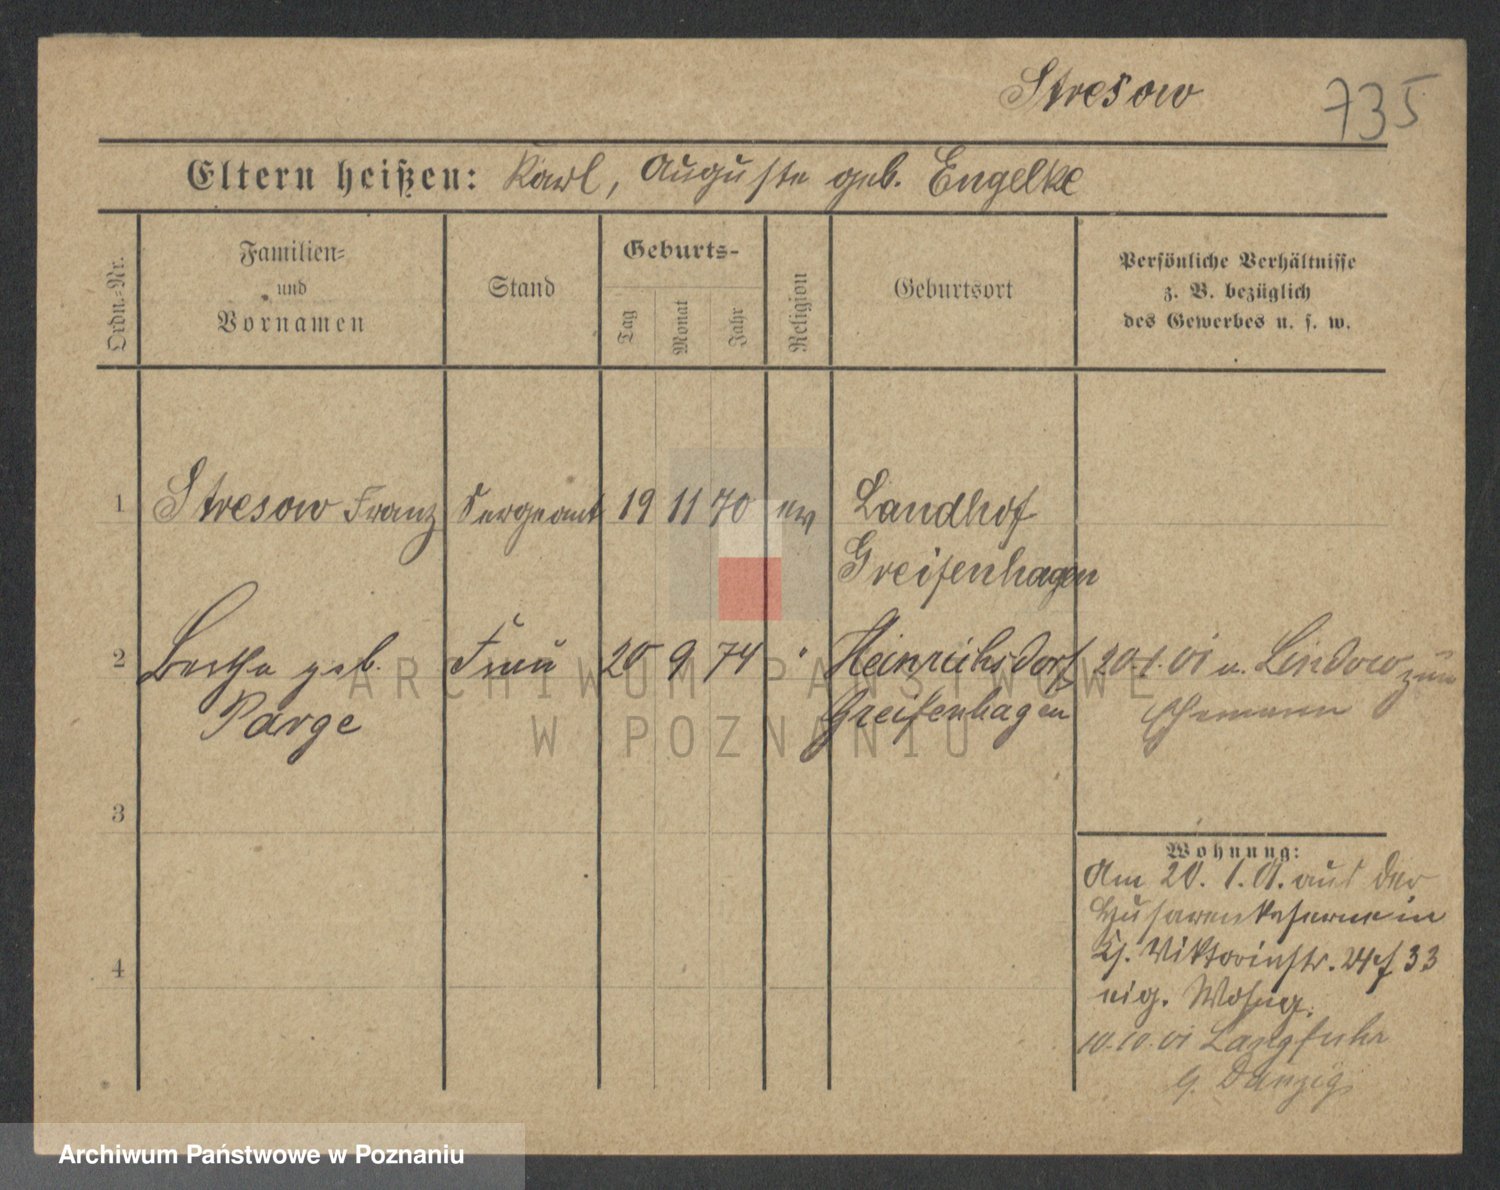 Stresow
735
Eltern heißen: Karl, Auguste geb. Engelke
Ordn.-Nr.
Familien-
und
Vornamen
Stand
Geburts-
Tag
Monat
Jahr
Religion
Geburtsort
Persönliche Verhältnisse
z. B. bezüglich
des Gewerbes u. s. w.
1 Stresow Franz Sergeant 19 11 70 ev Landhof
Greifenhagen
2 Bertha geb. Frau 20 9 74 " Heinrichsdorf 20.1.01 v. Lindow zum
Parge Greifenhagen Ehemann
3
4
Wohnung:
Am 20. 1. 01. aus der
Husarenkaserne in
Viktoriastr. 33
eig. Wohng.
10.10.01 Langfuhr
Danzig
ARCHIWUM PAŃSTWOWE
W POZNANIU
Archiwum Państwowe w Poznaniu